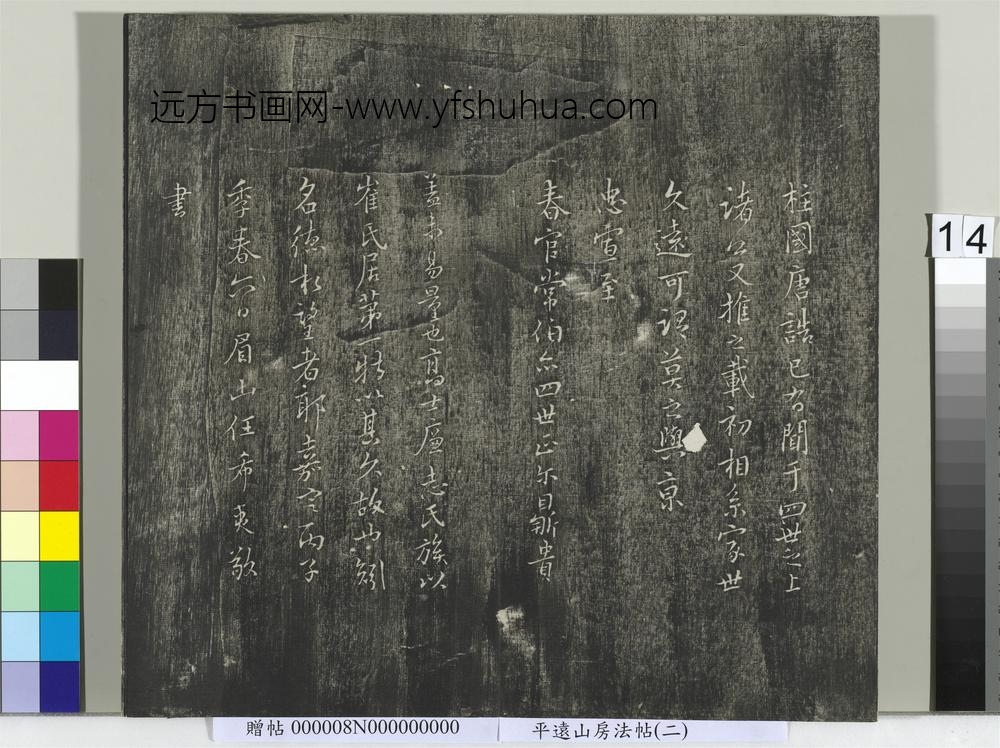 远方书画网-www.yfshuhua.com
柱國唐誥已有聞于四世之上
諸公又推之載初相系家世
久遠可謂莫之與京
忠宣至
春官常伯亦四世正尓目斯貴
蓋未易量也高士廉志氏族以
崔氏居第一特以其久故也矧
名德相望者耶嘉定丙子
季春六日眉山任希夷敬
書
14
贈帖 000008N000000000
平遠山房法帖(二)